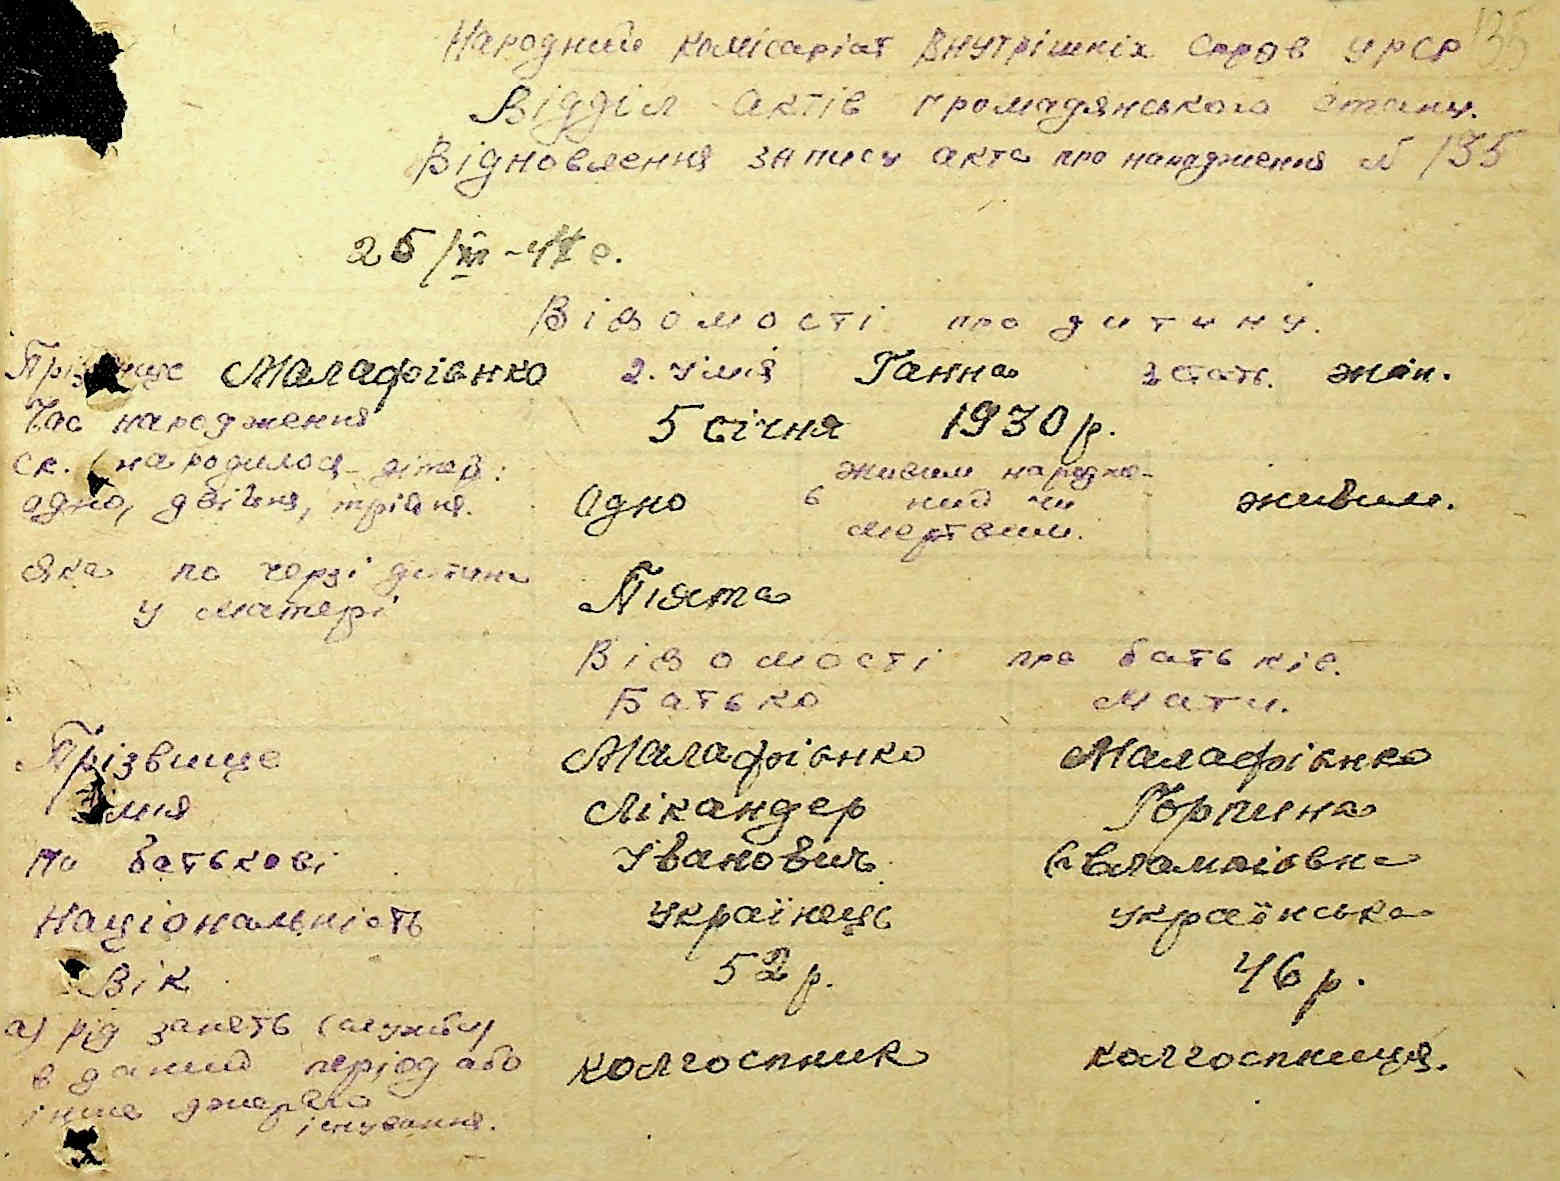 135
Народний комісаріат Внутрішніх Справ УРСР
Відділ актів громадянського стану.
Відновлення запису акта про народження № 135
25/III-44 р.
Відомості про дитину.
Прізвище Малафієнко 2. Имія Ганна 3 Стать. жін.
Час народження 5 січня 1930 р.
ск. народилося дітей:
одно, двійня, трійня. Одно 6 живим народже-
ний чи
мертвим. живим.
яка по черзі дитина
у матері Пієята
Відомості про батьків.
Батько Мати.
Прізвище Малафієнко Малафієнко
імія Лікандер Горпина
по батькові Иванович Евлампієвна
Національність українець українська
Вік 52 р. 46 р.
а) рід занять (служби)
в даний період або
інше джерело
існування. колгоспник колгоспниця.